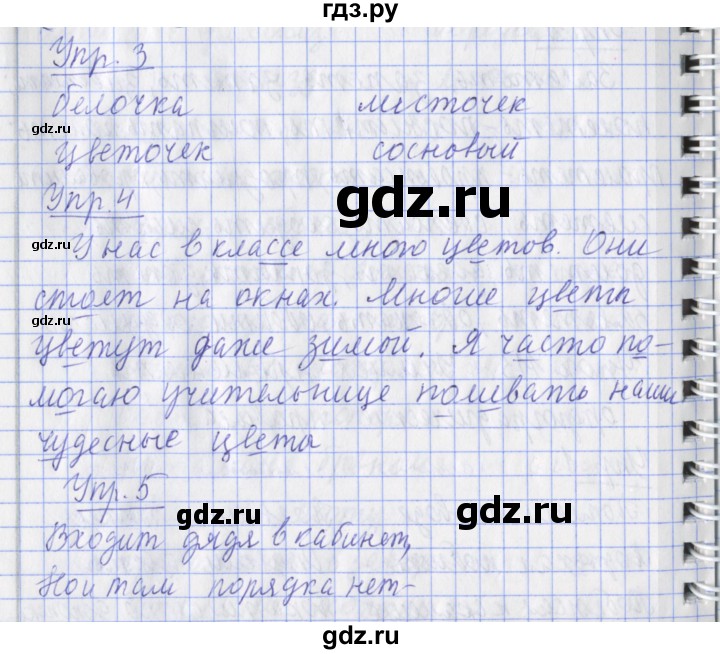 гдз.ру
Упр. 3
белочка мосточек
gdz.ru
цветочек сосновый gdz.ru
Упр. 4 gdz.ru
У нас в классе много цветов. Они
gdz.ru
стоят на окнах. Многие цветы
gdz.ru
цветут даже зимой. Я часто по-
могаю учительнице поливать наши
чудесные цветы
Упр. 5
gdz.ru gdz.ru
Входит дядя в кабинет,
Но и там порядка нет-
gdz.ru